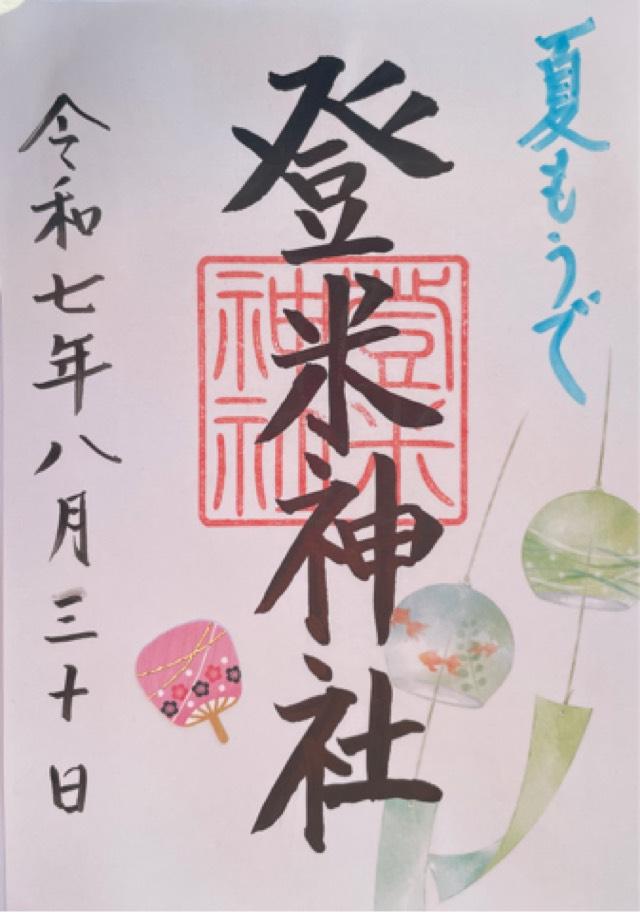 夏もうで
登米神社
登米神社
令和七年八月三十日